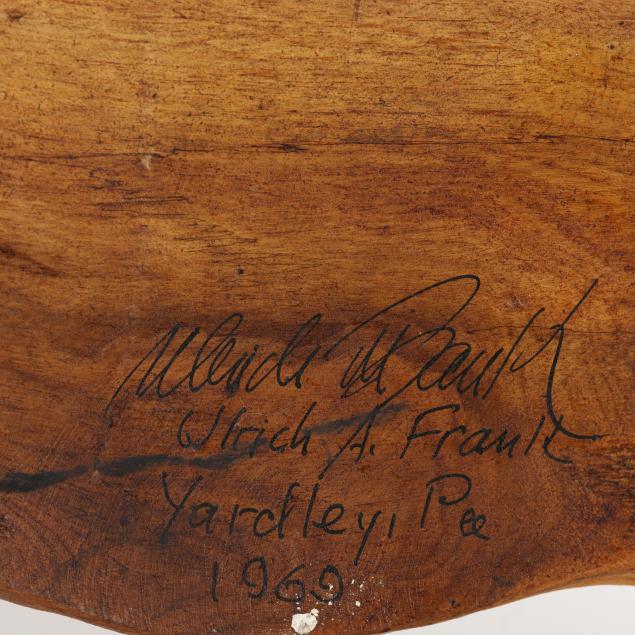 Ulrich A. Frank
Ulrich A. Frank
Yardley, Pa
1969